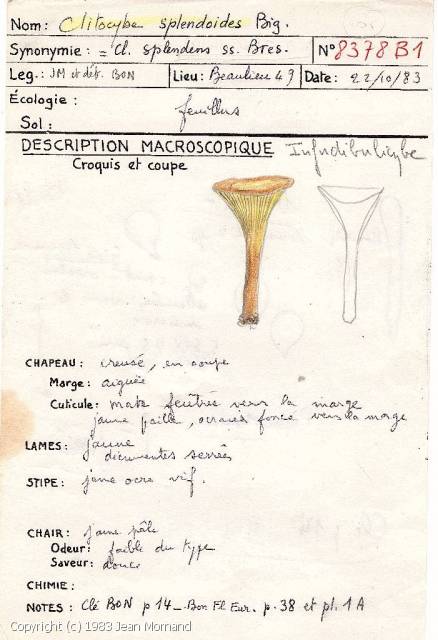 Nom: Clitocybe splendoides Big.
Synonymie: = Cl. splendens ss. Bres. N° 8378 B1
Leg.: JM et dét. BON Lieu: Beaulieu 49 Date: 22/10/83
Écologie: feuillus
Sol:
DESCRIPTION MACROSCOPIQUE Infudibulicybe
Croquis et coupe
CHAPEAU: creusé, en coupe
Marge: aiguëe
Cuticule: mate feutrée vers la marge
jaune paille, ocracé foncé vers la marge
LAMES: jaune
décurrentes serrées
STIPE: jaune ocre vif.
CHAIR: jaune pâle
Odeur: faible du type
Saveur: douce
CHIMIE:
NOTES: Clé BON p 14 - Bon Fl Eur. p. 38 et pl. 1A
Copyright (c) 1983 Jean Mornand